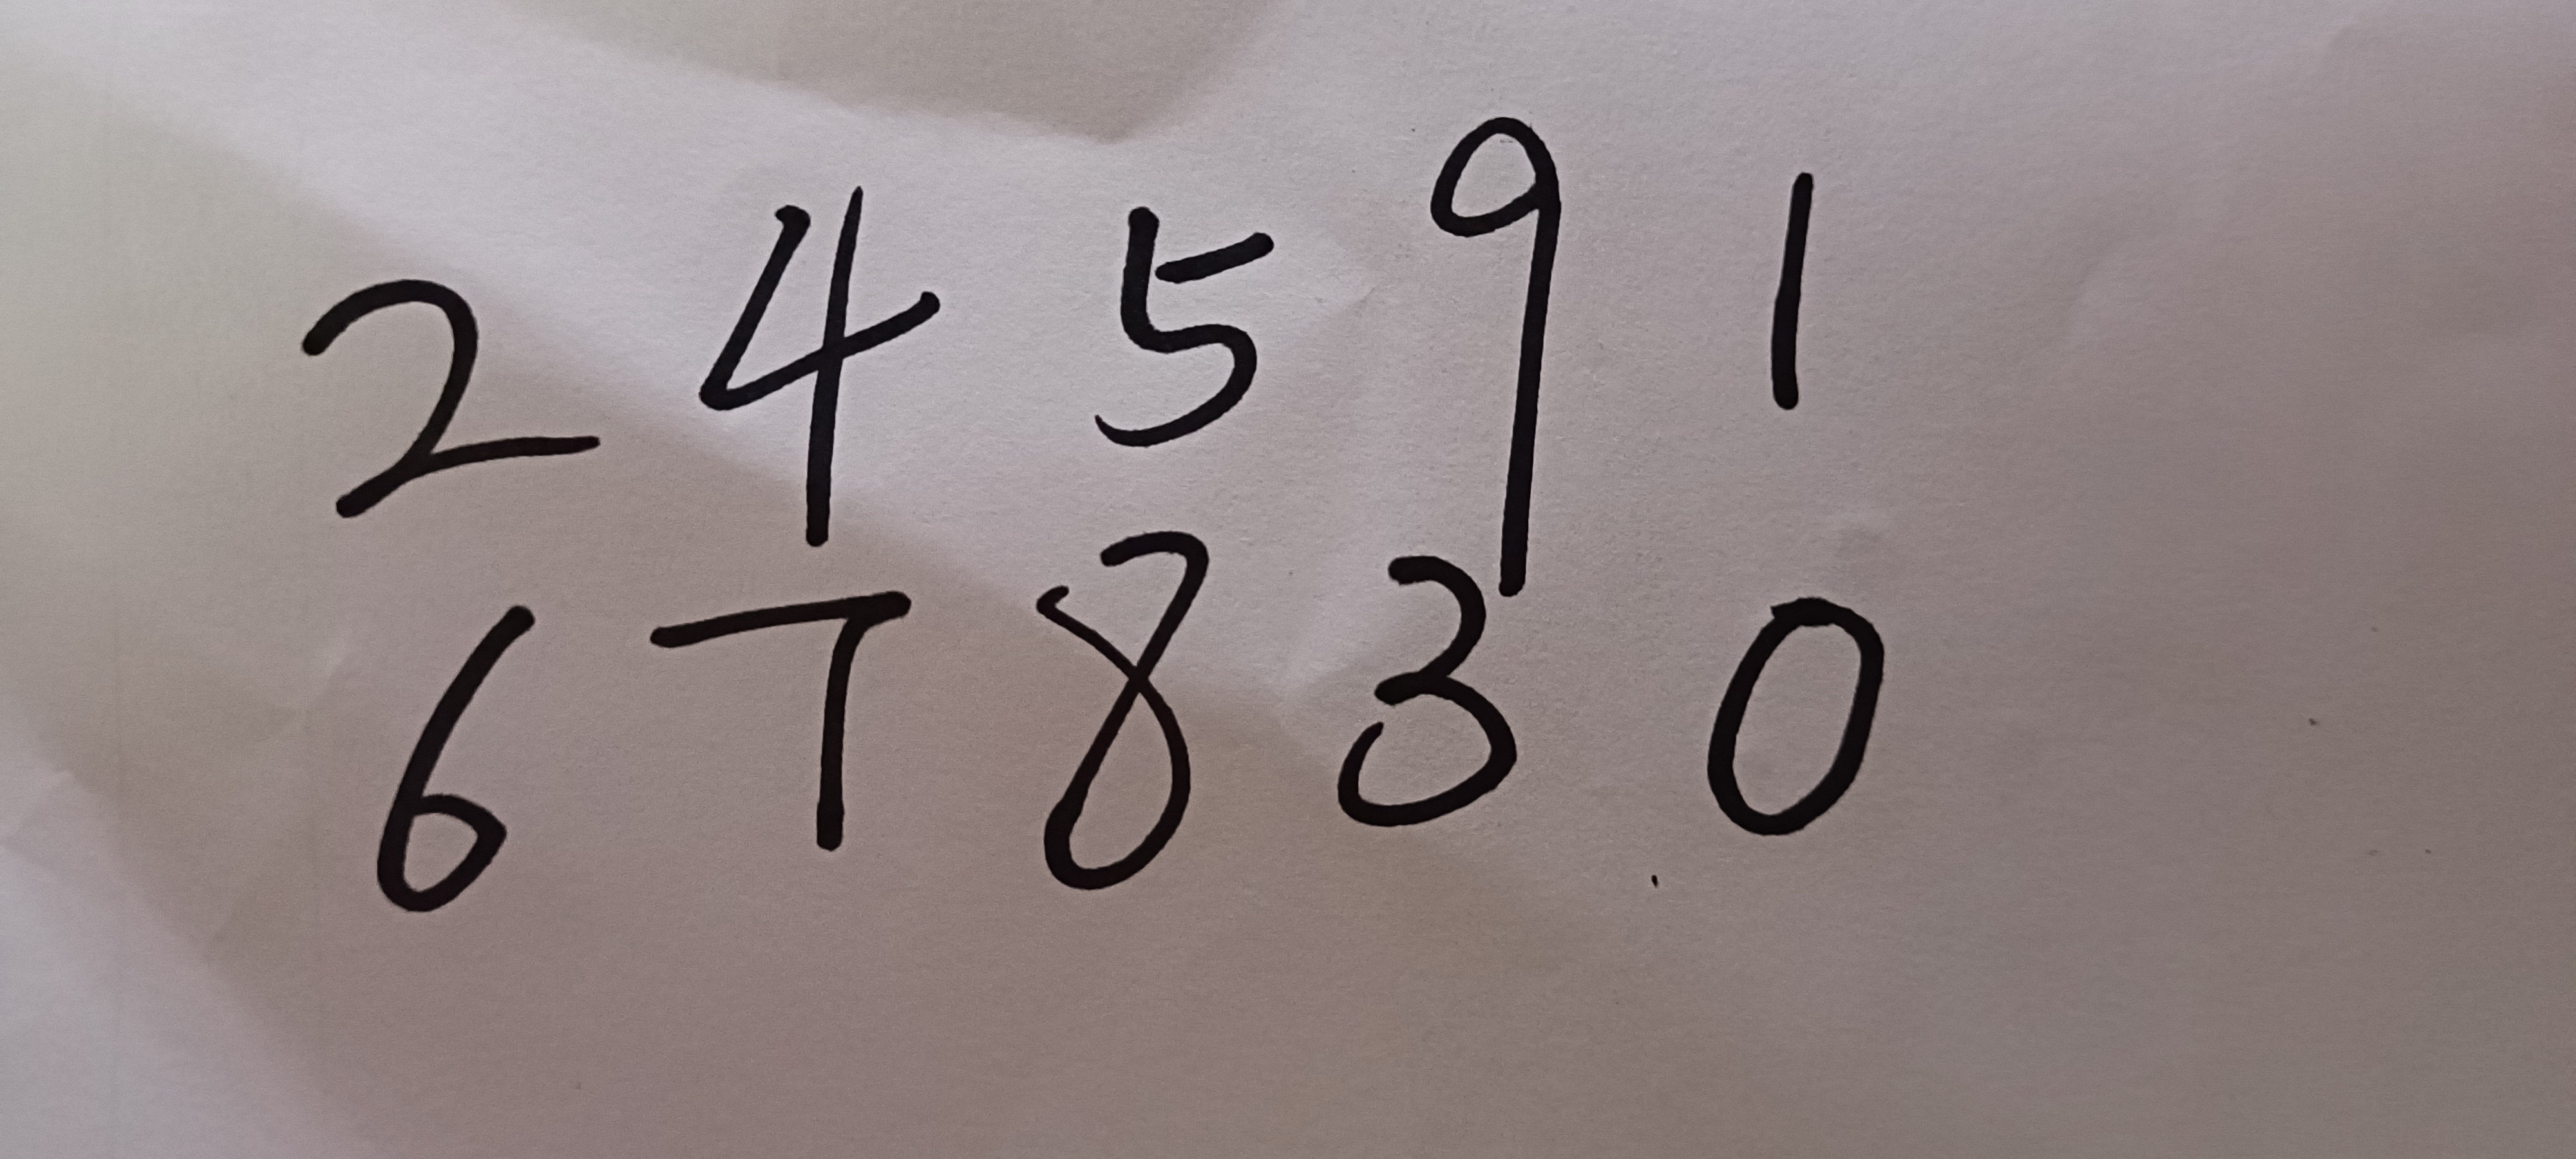 2 4 5 9 1
6 7 8 3 0